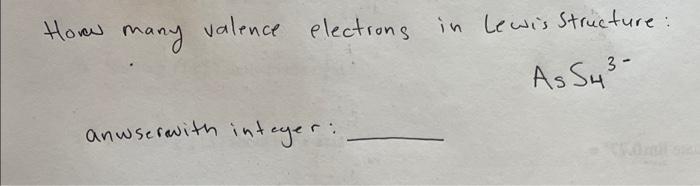 How many valence electrons in Lewis Structure:
AsS4 3-
anwserwith integer: ______